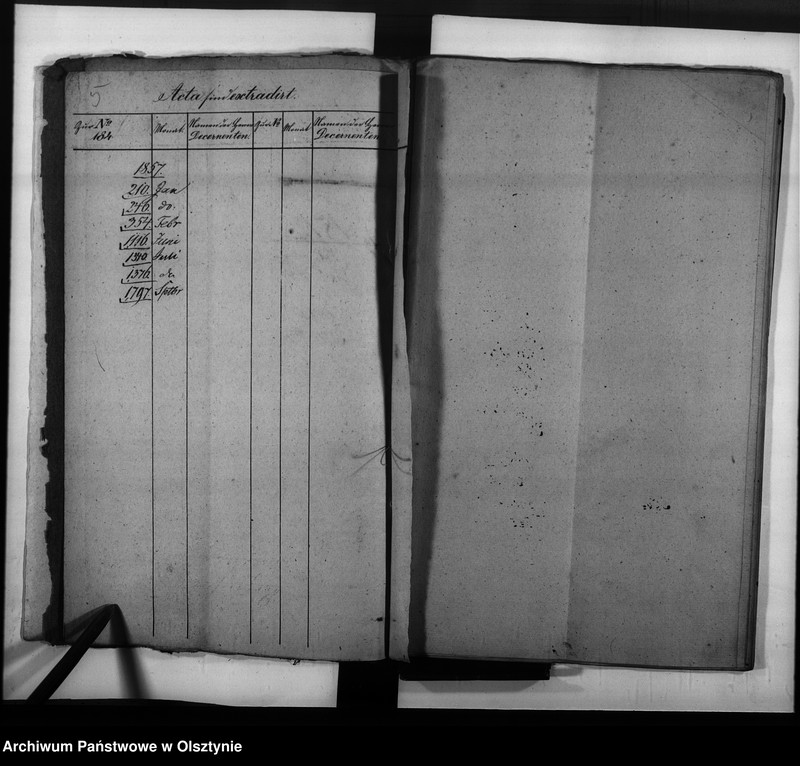 5
Acta sind extradirt.
Zur No. Monat Namen der Herren Decernenten. Zur No. Monat Namen der Herren Decernenten
184
1857.
210. Jan
246. do.
354. Febr
1116. Juni
1340 Juli
1376. do
1797. Septbr
Archiwum Państwowe w Olsztynie